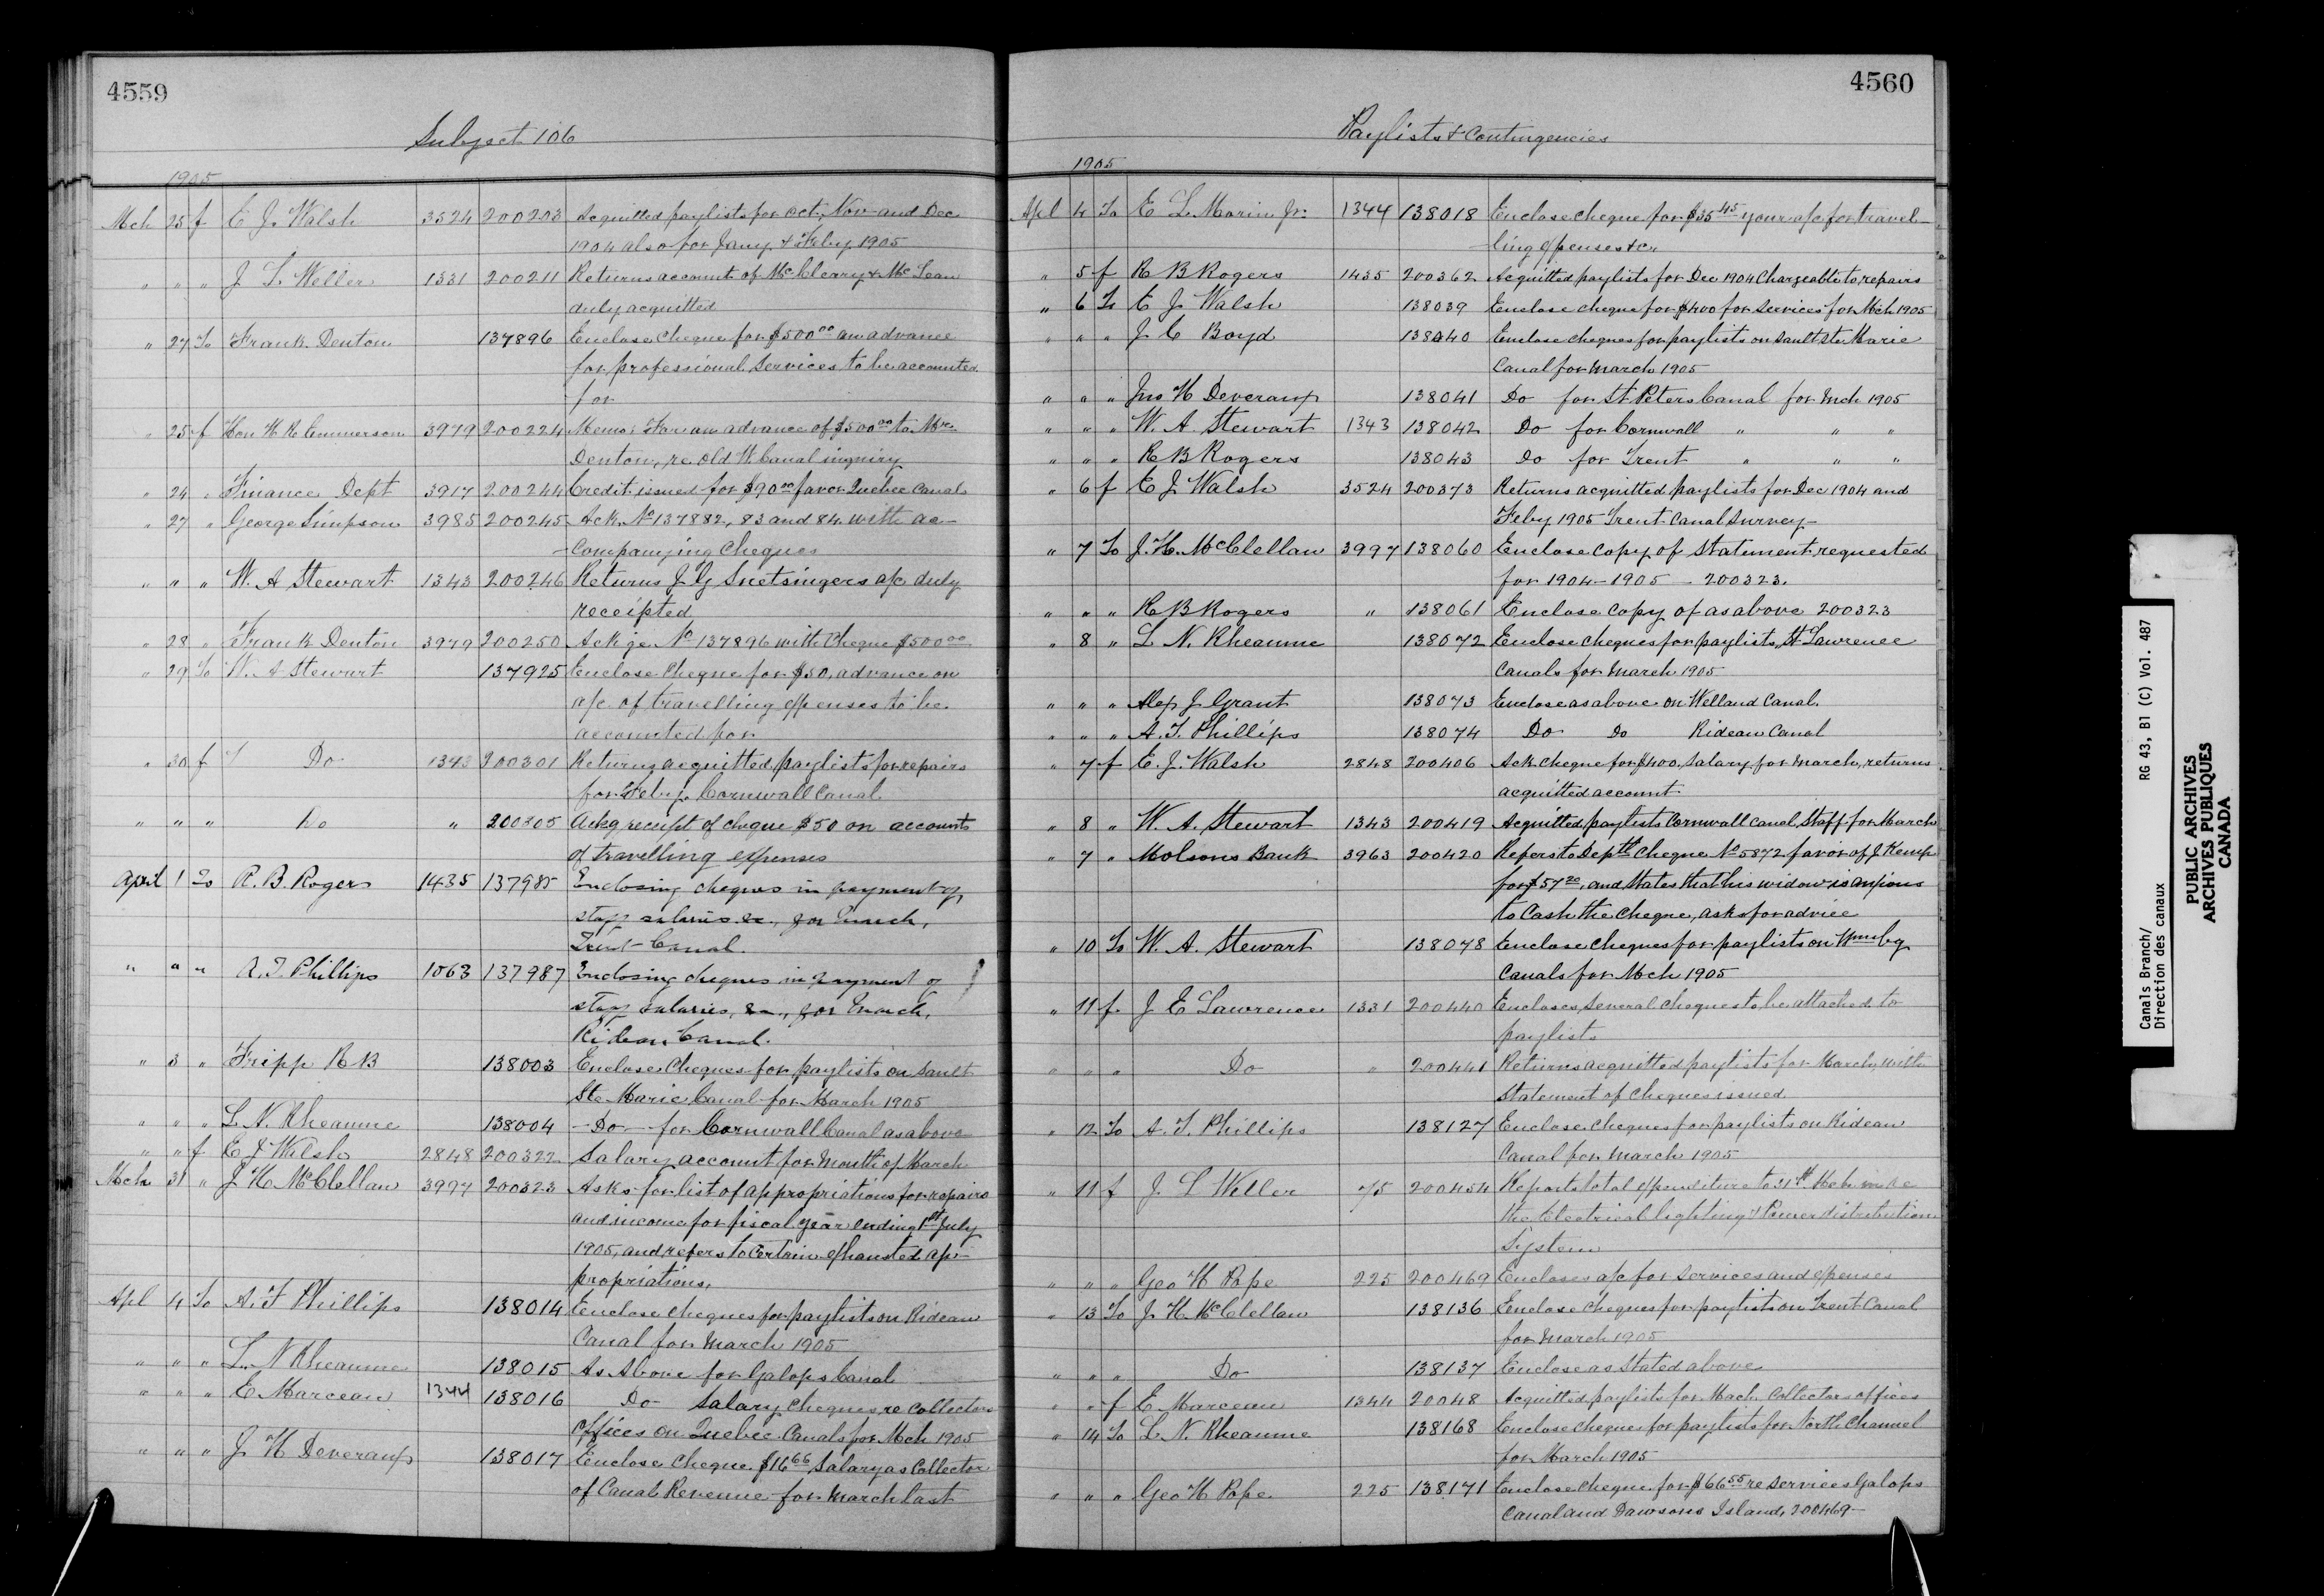 4559
Subject 106
1905
Mch 25 f E J. Walsh 3524 200203 Acquitted paylists for Oct, Nov and Dec
1904 also for Jany. & Feby. 1905
" " " J L. Weller 1331 200211 Returns account of McCleary & McLean
duly acquitted
" 27 To Frank Denton 137896 Enclose Cheque for $500 00 an advance
for professional Services to be accounted
for
" 25 f Hon H R Emmerson 3979 200224 Memo: For an advance of $500 00 to Mr.
Denton, re old W. Canal inquiry
" 24 " Finance Dept 3917 200244 Credit issued for $90 00 favor Quebec Canals
" 27 " George Simpson 3985 200245 Ack. No 137882, 83 and 84 with ac-
-companying Cheques
" " " W. A Stewart 1343 200246 Returns J G Snetsingers a/c duly
receipted
" 28 " Frank Denton 3979 200250 Ackge No 137896 with Cheque $500 00
" 29 To W. A Stewart 137925 Enclose Cheque for $50, advance on
a/c of travelling expenses to be
accounted for
" 30 f Do 1343 200301 Returns acquitted paylists for repairs
for Feby. Cornwall Canal
" " " Do " 200305 Ackg receipt of cheque $50 on accounts
of travelling expenses
April 1 To R. B. Rogers 1435 137985 Enclosing cheques in payment of
staff salaries &c., for March,
Trent Canal.
" " " A. T. Phillips 1063 137987 Enclosing cheques in payment of
staff salaries, &c., for March,
Rideau Canal.
" 3 " Fripp R B 138003 Enclose Cheques for paylists on Sault
Ste Marie Canal for March 1905
" " " L. N. Rheaume 138004 -Do- for Cornwall Canal as above
" " f E J Walsh 2848 200322 Salary account for month of March
Mch 31 " J H McClellan 3997 200323 Asks for list of appropriations for repairs
and income for fiscal year ending 1st July
1905, and refers to certain exhausted ap-
propriations.
Apl 4 To A. T Phillips 138014 Enclose cheques for paylists on Rideau
Canal for March 1905
" " " L. N Rheaume 138015 As Above for Galops Canal
" " " E Marceau 1344 138016 Do Salary cheques re Collectors
offices on Quebec Canals for Mch 1905
" " " J H Deveraux 138017 Enclose Cheque $16 66 Salary as Collector
of Canal Revenue for March last
4560
Paylists & Contingencies
1905
Apl 4 To E L. Marin Jr. 1344 138018 Enclose cheque for $35 45 your a/c for travel-
-ling expenses &c"
" 5 f R B Rogers 1435 200362 Acquitted paylists for Dec 1904 Chargeable to repairs
" 6 To E J. Walsh 138039 Enclose cheque for $400 for services for Mch 1905
" " " J C Boyd 138040 Enclose cheques for paylists on Sault Ste Marie
Canal for March 1905
" " " Jno H Deveraux 138041 Do for St Peters Canal for Mch 1905
" " " W. A. Stewart 1343 138042 Do for Cornwall " " "
" " " R B Rogers 138043 Do for Trent " " "
" 6 f E J Walsh 3524 200373 Returns acquitted paylists for Dec 1904 and
Feby 1905 Trent Canal Survey-
" 7 To J. H. McClellan 3997 138060 Enclose copy of statement requested
for 1904-1905 - 200323.
" " " R B Rogers " 138061 Enclose copy of as above 200323
" 8 " L N. Rheaume 138072 Enclose cheques for paylists, St Lawrence
Canals for March 1905
" " " Alex J Grant 138073 Enclose as above on Welland Canal.
" " " A. T. Phillips 138074 Do Do Rideau Canal
" 7 f E. J. Walsh 2848 200406 Ack cheque for $400, salary for March, returns
acquitted account
" 8 " W. A. Stewart 1343 200419 Acquitted paylists Cornwall Canal Staff for March
" 7 " Molsons Bank 3963 200420 Refers to Deptl Cheque No 5872 favor of J. Kemp
for $57 20, and states that his widow is anxious
to Cash the cheque, asks for advice
" 10 To W. A. Stewart 138078 Enclose cheques for paylists on Wmsbg
Canals for Mch 1905
" 11 f J E Lawrence 1331 200440 Encloses several cheques to be attached to
paylists
" " " Do " 200441 Returns acquitted paylists for March, with
Statement of cheques issued
" 12 To A. T. Phillips 138127 Enclose cheques for paylists on Rideau
Canal for March 1905
" 11 f J. L Weller 75 200454 Reports total expenditure to 31st Mch in re
the Electrical lighting & Power distribution
System
" " " Geo H Pope 225 200469 Encloses a/c for services and expenses
" 13 To J. H. McClellan 138136 Enclose cheques for paylists on Trent Canal
for March 1905
" " " Do 138137 Enclose as stated above
" " f E Marceau 1344 20048 Acquitted paylists for Mach. Collectors offices
" 14 To L. N. Rheaume 138168 Enclose cheques for paylists for North Channel
for March 1905
" " " Geo H Pope 225 138171 Enclose cheque for $66 55 re services Galops
Canal and Dawsons Island, 200469-
Canals Branch/ RG 43, B1 (C) Vol. 487
Direction des canaux
PUBLIC ARCHIVES
ARCHIVES PUBLIQUES
CANADA